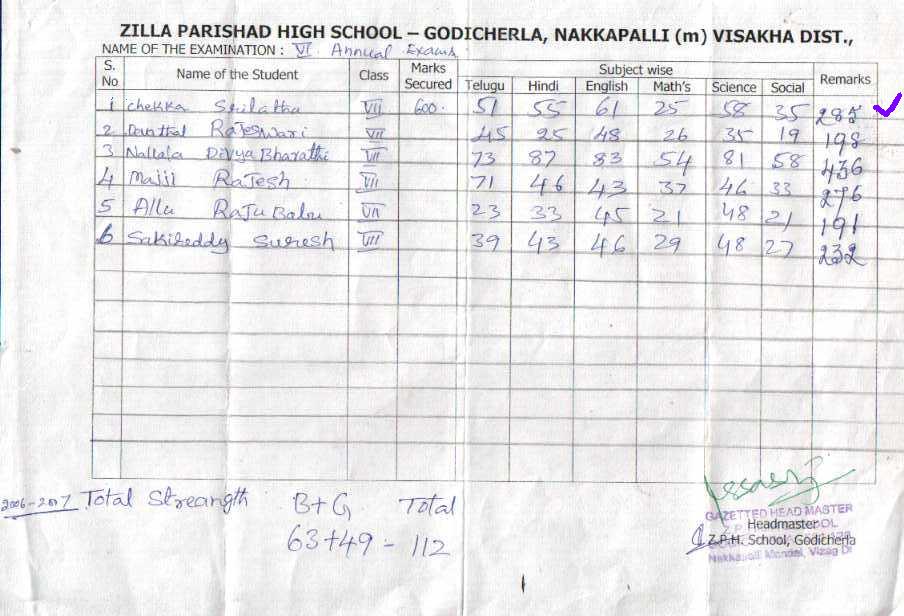 ZILLA PARISHAD HIGH SCHOOL – GODICHERLA, NAKKAPALLI (m) VISAKHA DIST.,
NAME OF THE EXAMINATION : VI Annual Exams.
S. No Name of the Student Class Marks Secured Subject wise Remarks
Telugu Hindi English Math's Science Social
1 chekka Srilatha VII 600. 51 55 61 25 58 35 285
2 Rajeswari VII 45 25 48 26 35 19 198
3 Nallala Divya Bharathi VII 73 87 83 54 81 58 436
4 Majji Rajesh VII 71 46 43 37 46 33 276
5 Allu Raju Babu VII 23 33 45 21 48 21 191
6 Sakireddy Suresh VII 39 43 46 29 48 27 232
2006-2007 Total Streangth B+G Total
63+49 - 112
GAZETTED HEAD MASTER
Headmaster
Z.P.H. School, Godicherla
Nakkapalli Mandal, Vizag Dt